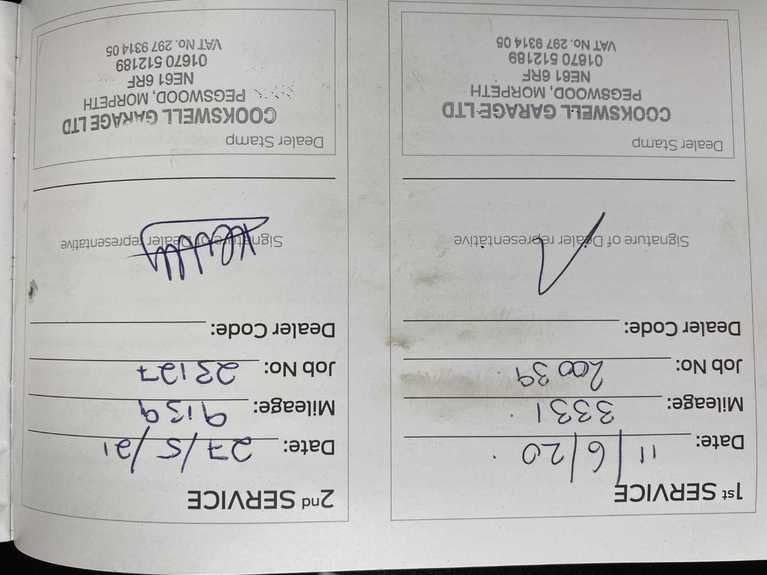 1st SERVICE
Date: 11/6/20
Mileage: 3331
Job No: 20039
Dealer Code:
Signature of Dealer representative
Dealer Stamp
COOKSWELL GARAGE LTD
PEGSWOOD, MORPETH
NE61 6RF
01670 512189
VAT No. 297 9314 05
2nd SERVICE
Date: 27/5/21
Mileage: 9139
Job No: 23127
Dealer Code:
Signature of Dealer representative
Dealer Stamp
COOKSWELL GARAGE LTD
PEGSWOOD, MORPETH
NE61 6RF
01670 512189
VAT No. 297 9314 05